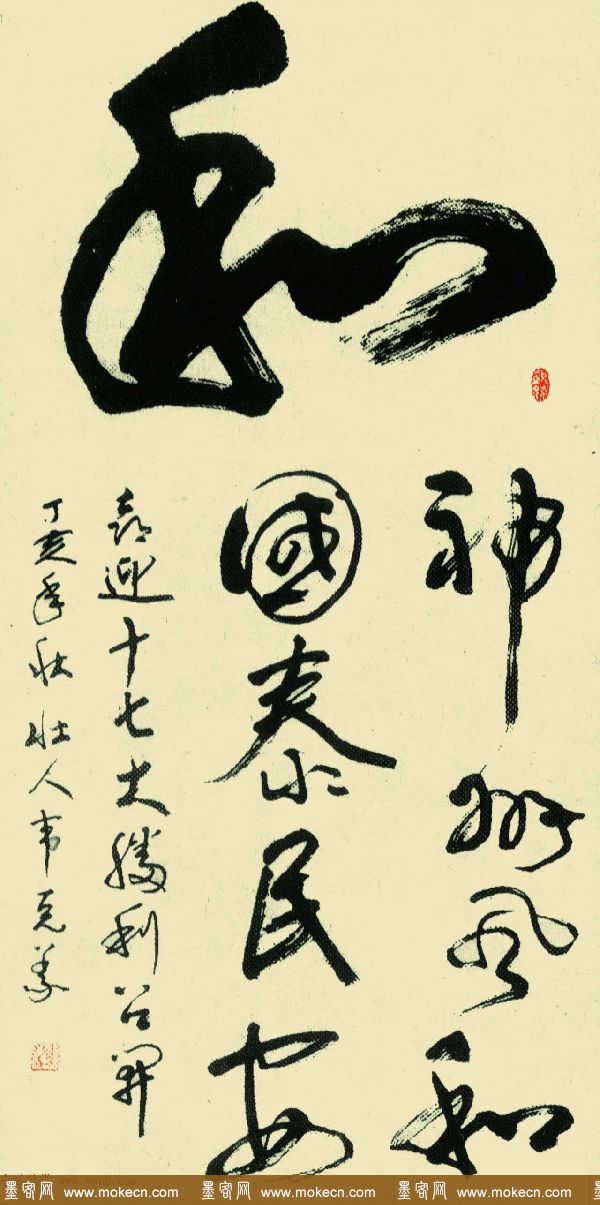 和
神州風和
國泰民安
喜迎十七大勝利召開
丁亥年秋 壯人韦克义
墨客网 www.mokecn.com 墨客网 www.mokecn.com 墨客网 www.mokecn.com